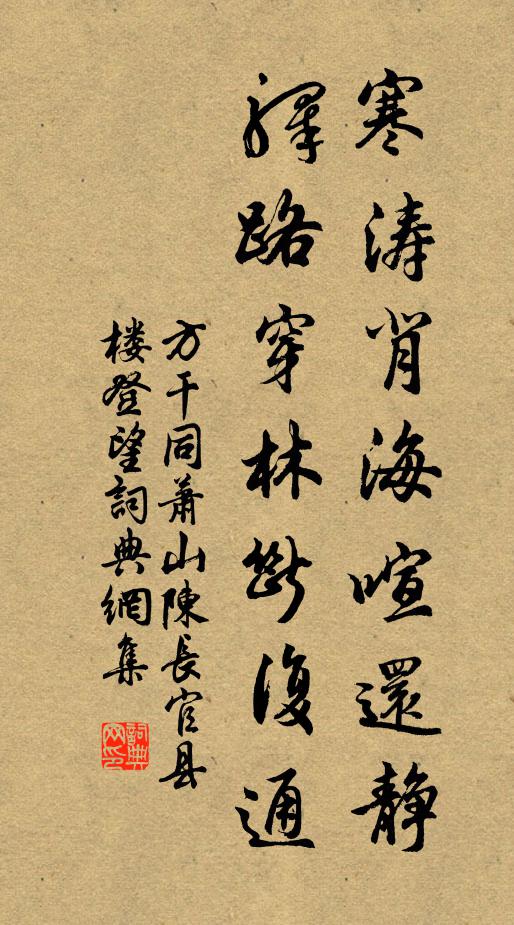 寒涛背海喧還静
驛路穿林斷復通
方干同蕭山陳長官县
楼登望詞典網集
詞典
网印